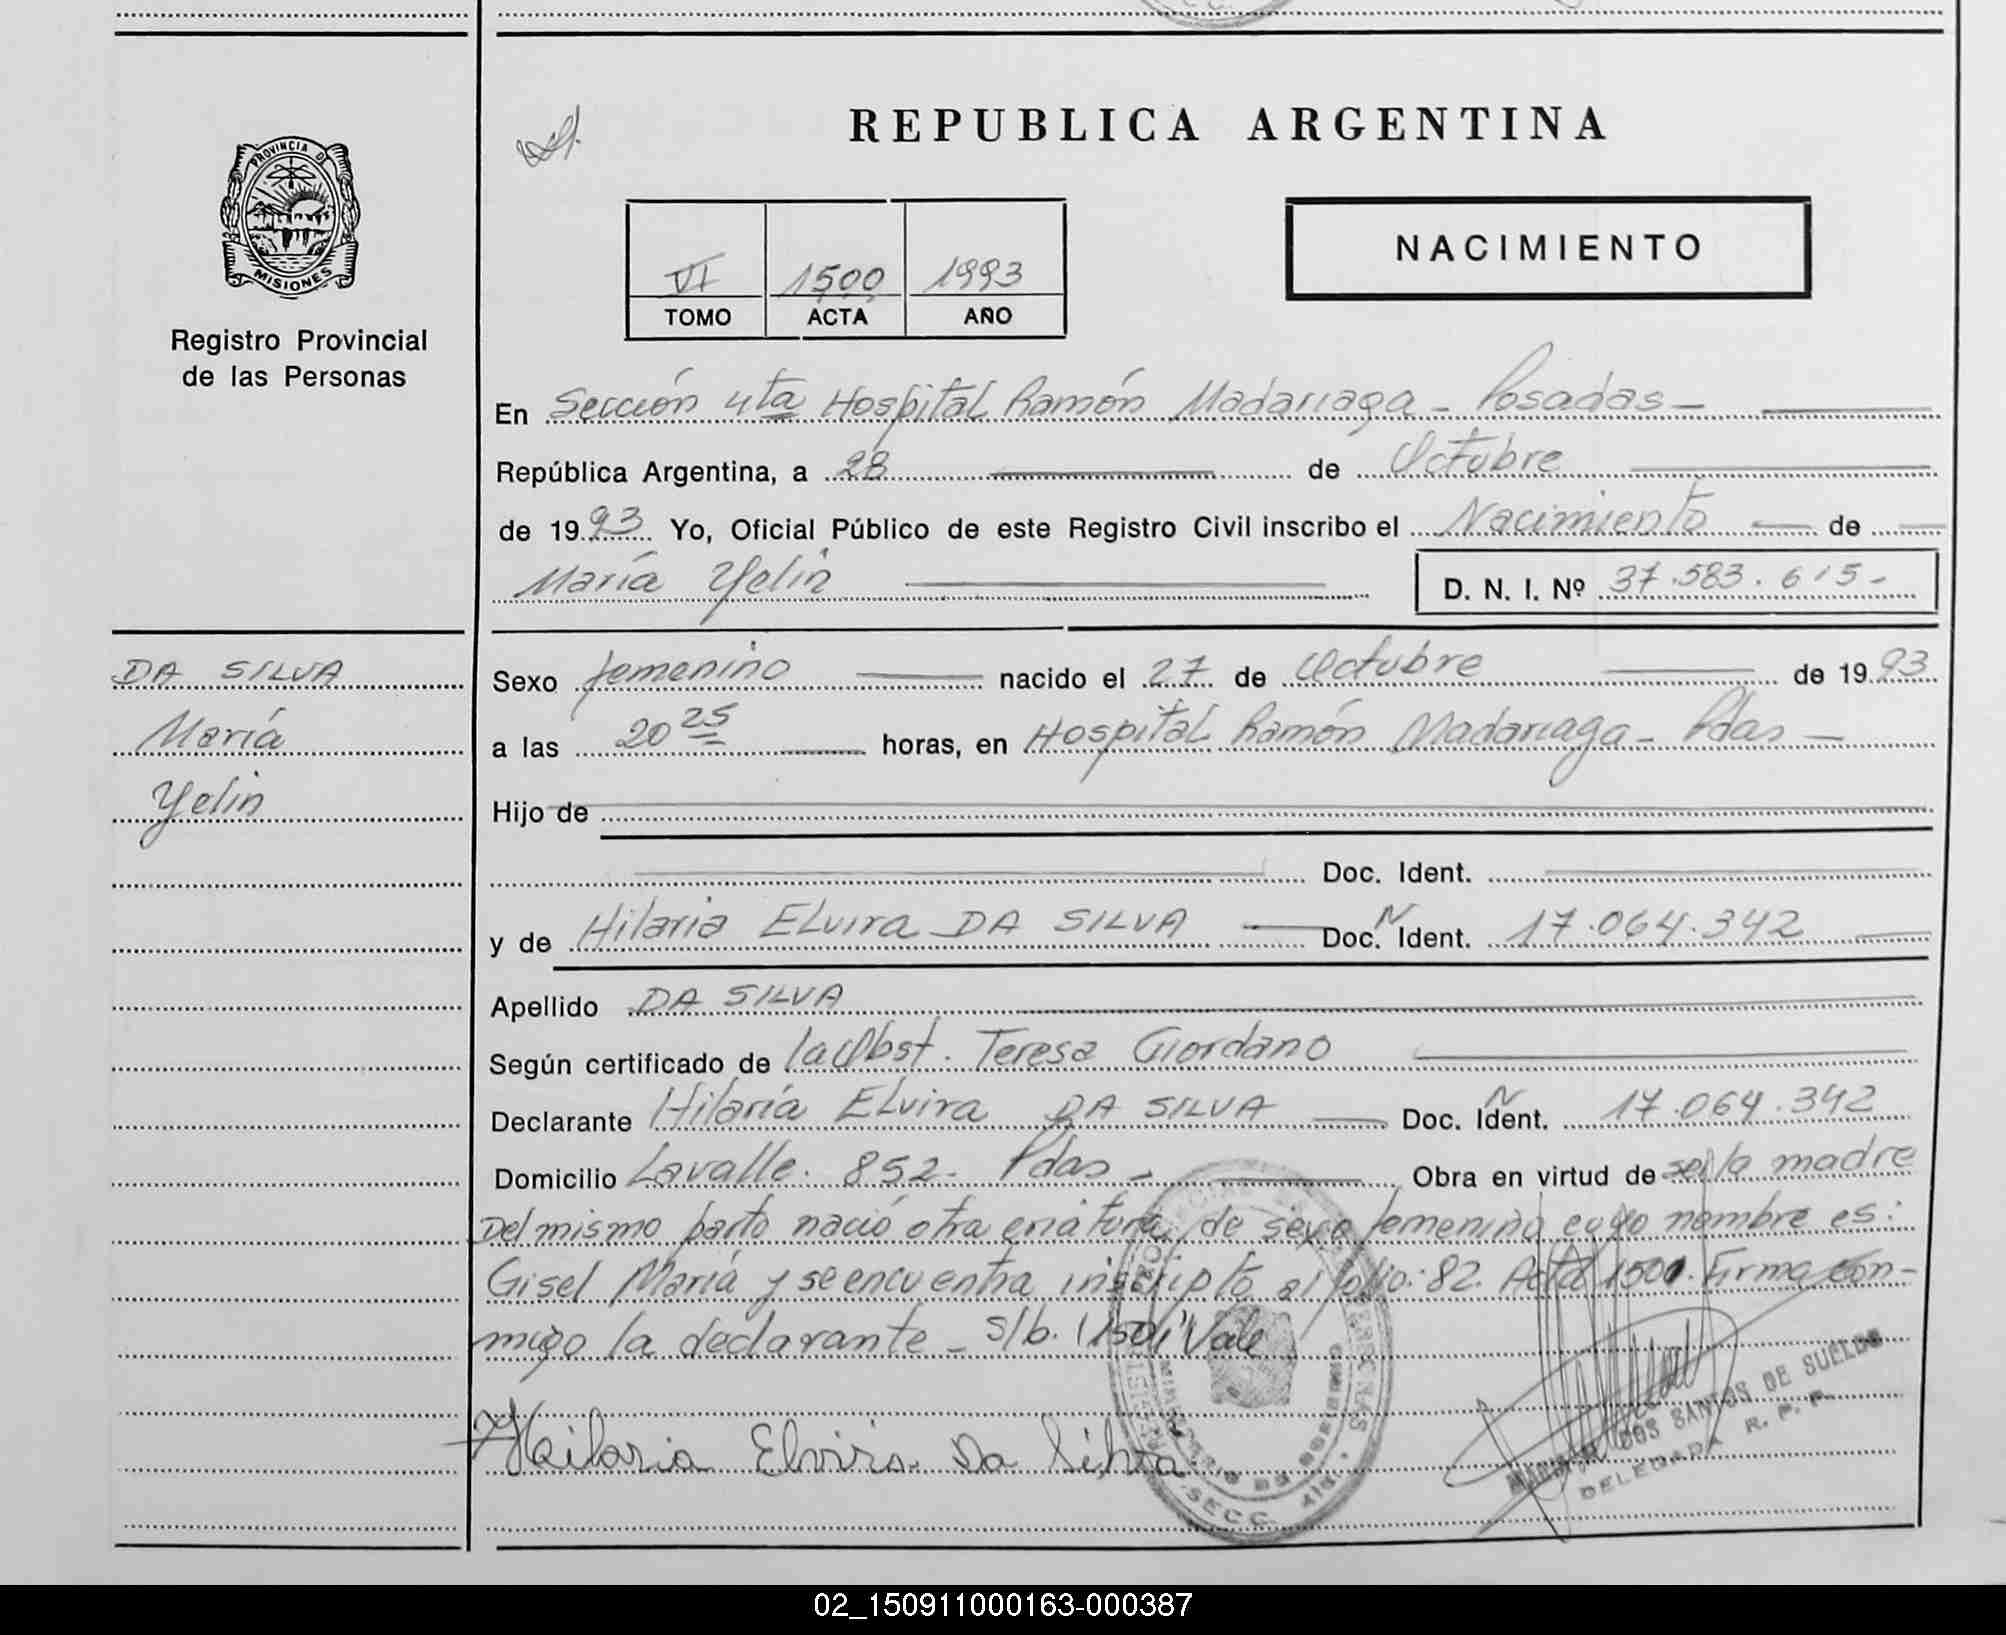 REPUBLICA ARGENTINA
PROVINCIA D
MISIONES
Registro Provincial
de las Personas
VI 1500 1993
TOMO ACTA AÑO
NACIMIENTO
En Sección 4ta Hospital Ramón Madariaga - Posadas -
República Argentina, a 28 de Octubre
de 1993 Yo, Oficial Público de este Registro Civil inscribo el Nacimiento de
María Yelin D. N. I. Nº 37.583.615-
DA SILVA
María
Yelin
Sexo femenino nacido el 27 de Octubre de 1993
a las 20 25 horas, en Hospital Ramón Madariaga - Pdas -
Hijo de
Doc. Ident.
y de Hilaria Elvira DA SILVA Doc. Ident. 17.064.342
Apellido DA SILVA
Según certificado de la Obst. Teresa Giordano
Declarante Hilaria Elvira DA SILVA Doc. Ident. 17.064.342
Domicilio Lavalle. 852- Pdas - Obra en virtud de ser la madre
Del mismo parto nació otra criatura, de sexo femenino cuyo nombre es:
Gisel María y se encuentra inscripto al folio: 82. Acta 1501. Firma con-
migo la declarante - s/b. 1501 Vale
Hilaria Elvira Da Silva
DOS SANTOS DE SUELDO
DELEGADA R. P. P.
SECC
02_150911000163-000387